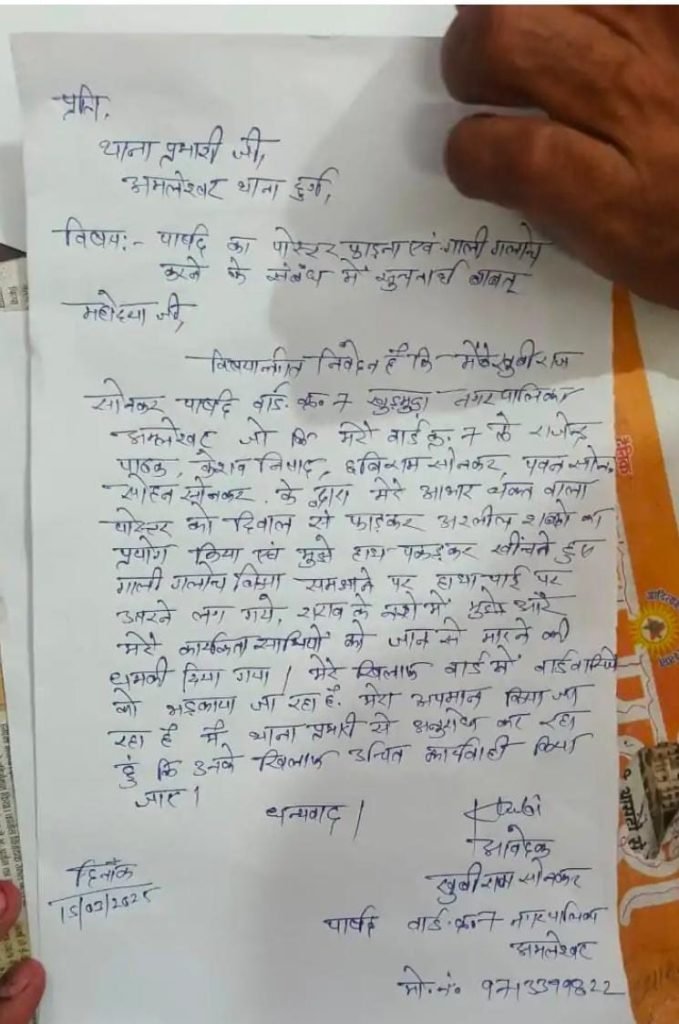 प्रति,
थाना प्रभारी जी,
अमलेश्वर थाना दुर्ग,
विषय:- पार्षद का पोस्टर फाड़ना एवं गाली गलौच
करने के संबंध में सूचनार्थ बाबत्
महोदया जी,
विषयान्तर्गत निवेदन है कि मैं खुबीराम
सोनकर पार्षद वार्ड.क्र.7 खुड़मुड़ा नगरपालिका
अमलेश्वर जो कि मेरे वार्ड क्र.7 के राजेन्द्र
पाठक, केशव निषाद, छविराम सोनकर, पवन सोन.
सोहन सोनकर. के द्वारा मेरे आभार व्यक्त वाला
पोस्टर को दिवाल से फाड़कर अश्लील शब्दों का
प्रयोग किया एवं मुझे हाथ पकड़कर खींचते हुए
गाली गलौच किया समझाने पर हाथापाई पर
उतरने लग गये, शराब के नशे में मुझे और
मेरे कार्यकर्ता साथियों को जान से मारने की
धमकी दिया गया। मेरे खिलाफ वार्ड में वार्डवासियों
को भड़काया जा रहा है. मेरा अपमान किया जा
रहा है मैं, थाना प्रभारी से अनुरोध कर रहा
हुं कि उनके खिलाफ उचित कार्यवाही किया
जाए।
धन्यवाद।
आवेदक
खुबीराम सोनकर
दिनाँक
15/03/2025
पार्षद वार्ड.क्र.7 नगरपालिका
अमलेश्वर
मो.नं.